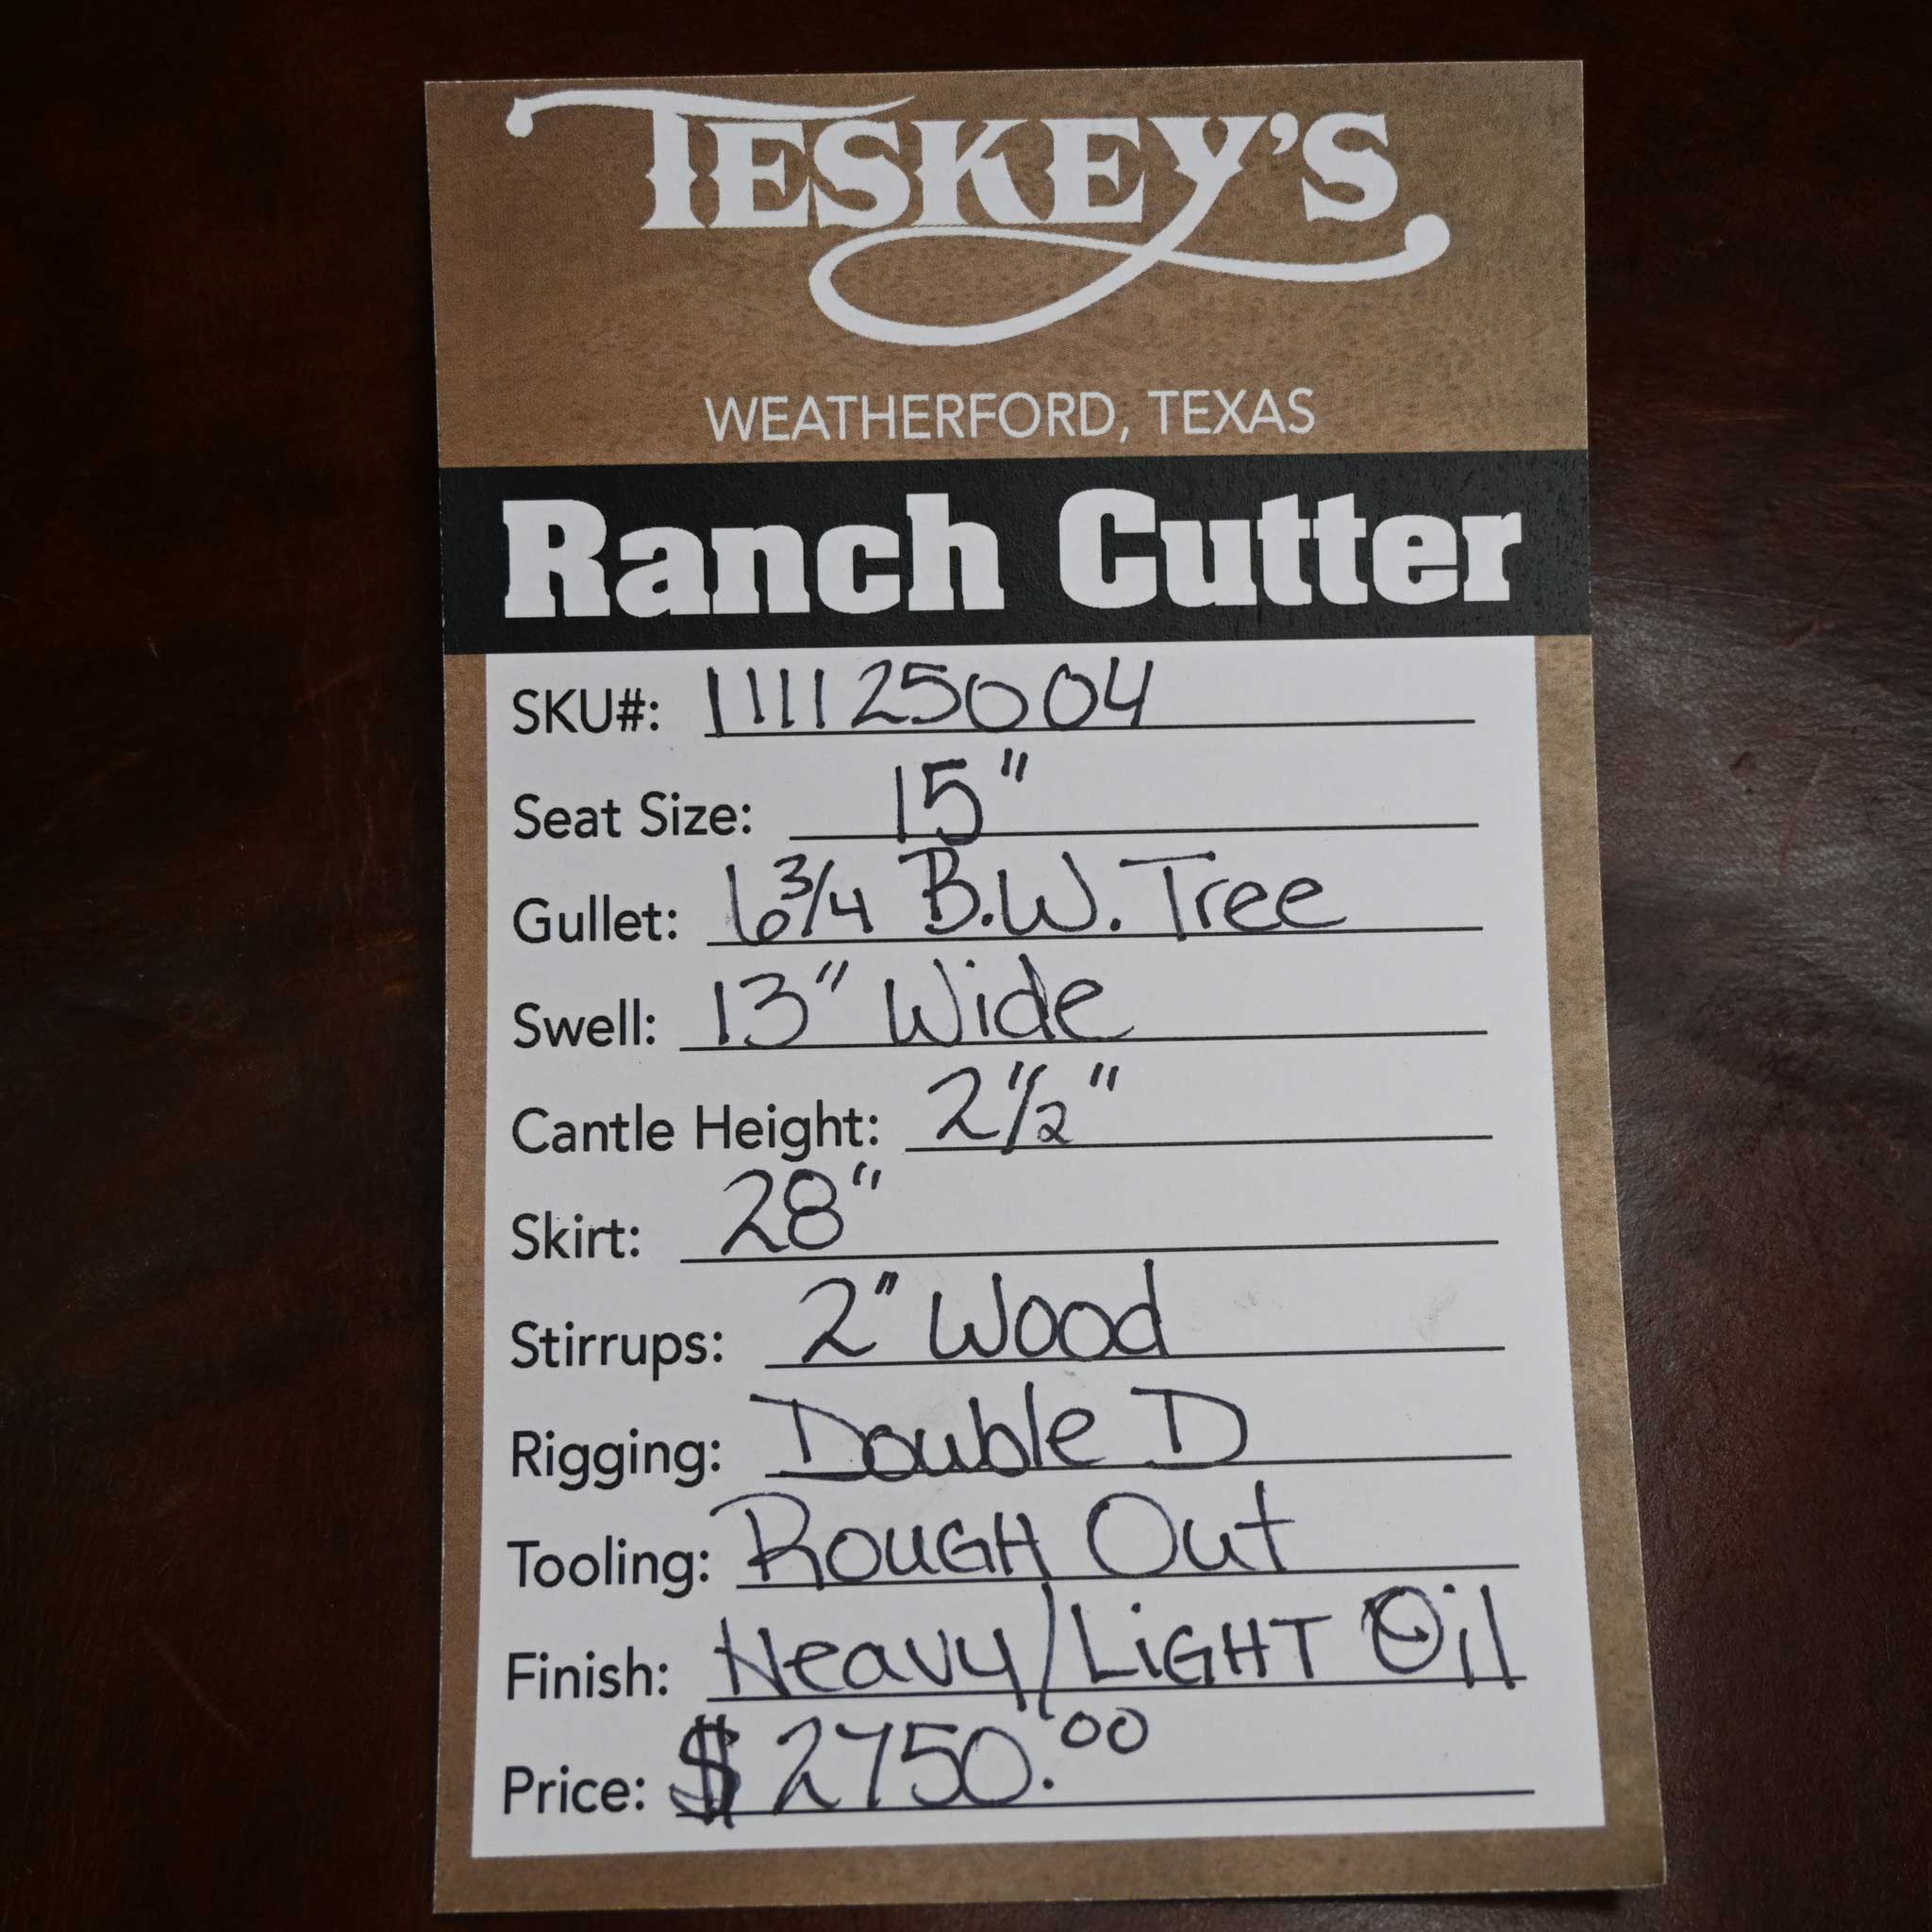 TESKEY'S
WEATHERFORD, TEXAS
Ranch Cutter
SKU#: 111125004
Seat Size: 15"
Gullet: 6 3/4 B.W. Tree
Swell: 13" Wide
Cantle Height: 2 1/2"
Skirt: 28"
Stirrups: 2" Wood
Rigging: Double D
Tooling: ROUGH Out
Finish: Heavy/LiGHT Oil
Price: $2750.00